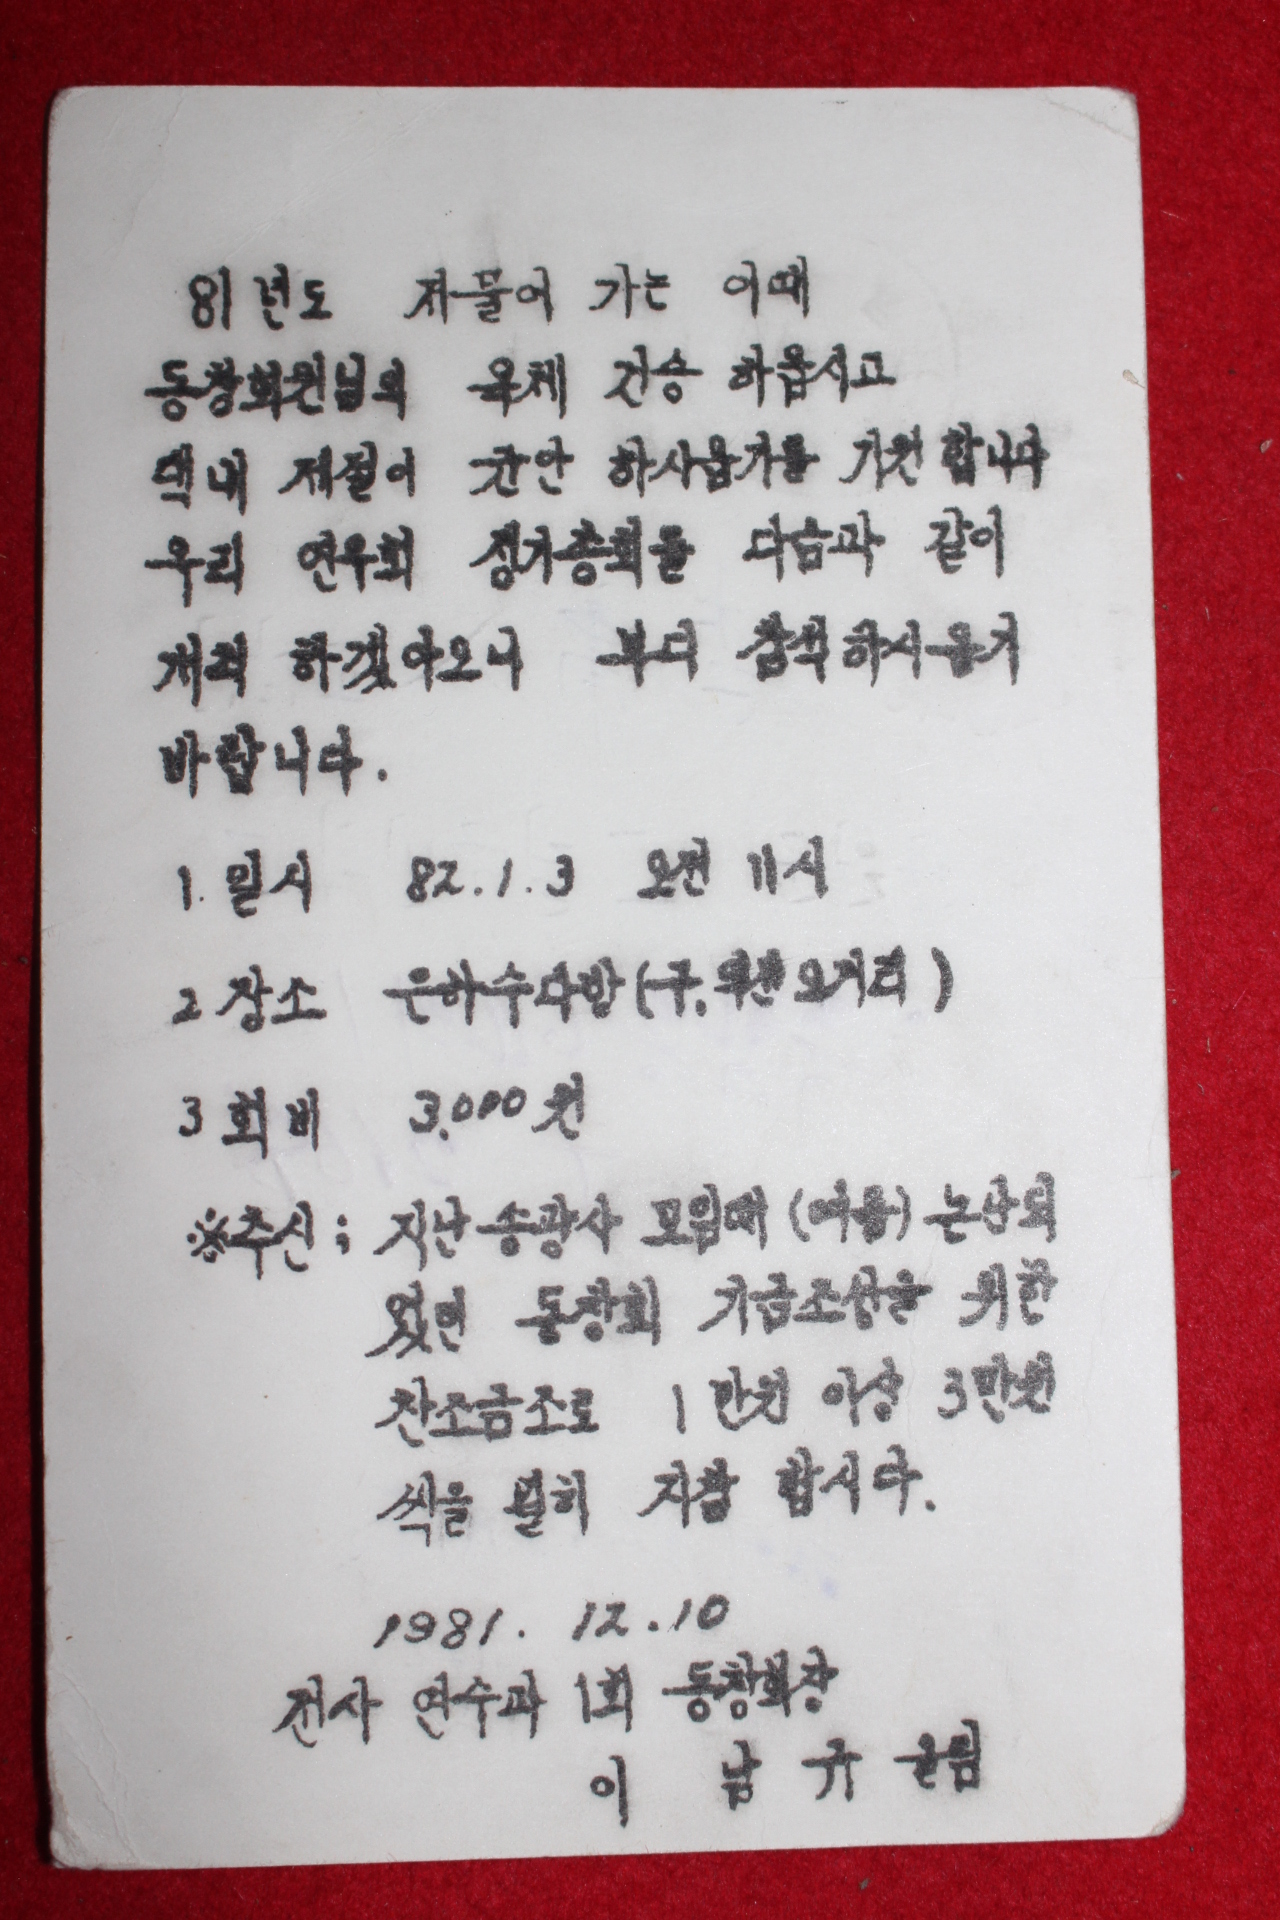 81년도 저물어 가는 이때
동창회원님의 옥체 건승 하옵시고
댁내 제절이 균안 하시옵기를 기원합니다
우리 연우회 정기총회를 다음과 같이
개최 하겠아오니 부디 참석하시옵기
바랍니다.
1. 일시 82.1.3 오전 11시
2 장소 은하수다방(구. 역전오거리)
3 회비 3.000원
※추신; 지난 송광사 모임때 (여름) 논산되
었던 동창회 기금조성을 위한
찬조금조로 1만원 이상 3만원
씩을 필히 지참 합시다.
1981. 12.10
전사 연수과 1회 동창회장
이 남 규 올림